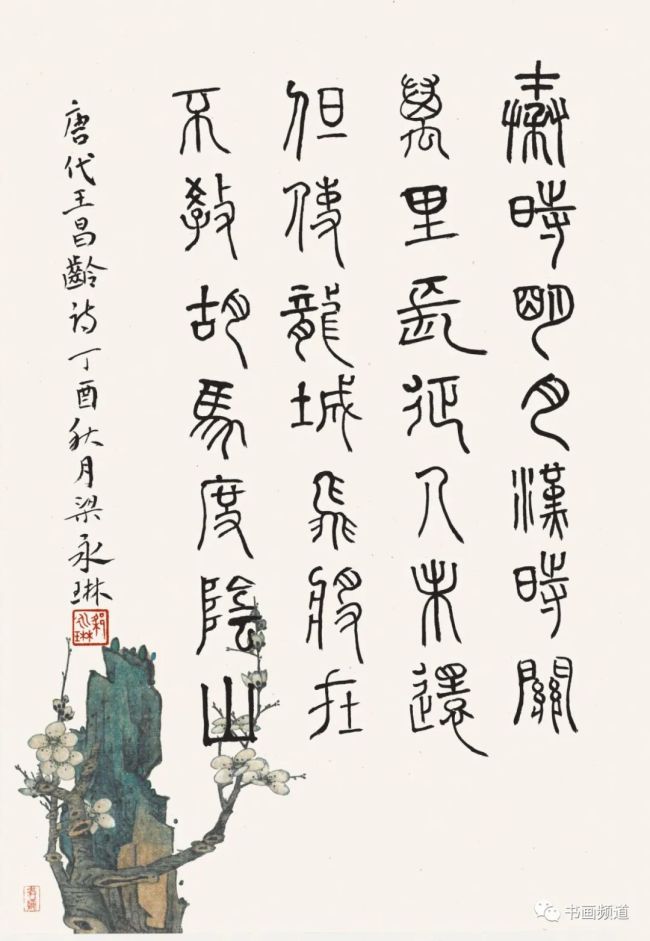 秦時明月漢時關
萬里長征人未還
但使龍城飛將在
不教胡馬度陰山
唐代王昌齡詩丁酉秋月梁永琳
书画频道